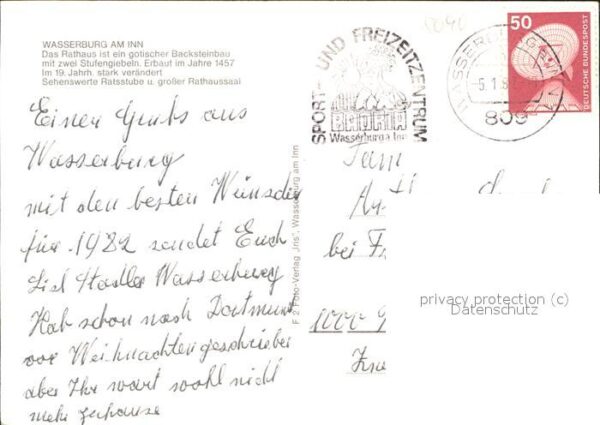 WASSERBURG AM INN
Das Rathaus ist ein gotischer Backsteinbau
mit zwei Stufengiebeln. Erbaut im Jahre 1457
Im 19. Jahrh. stark verändert
Sehenswerte Ratsstube u. großer Rathaussaal
Einen Gruß aus
Wasserburg
mit den besten Wünschen
für 1982 sendet Euch
Lisl Stadler Wasserburg
Hab schon nach Dortmund
vor Weihnachten geschrieben
aber Ihr wart wohl nicht
mehr zuhause
F. Z. Foto-Verlag „Iris", Wasserburg am Inn
SPORT- UND FREIZEITZENTRUM
BADRIA
Wasserburg a. Inn
809
50
DEUTSCHE BUNDESPOST
Fam
bei
1000
privacy protection (c)
Datenschutz